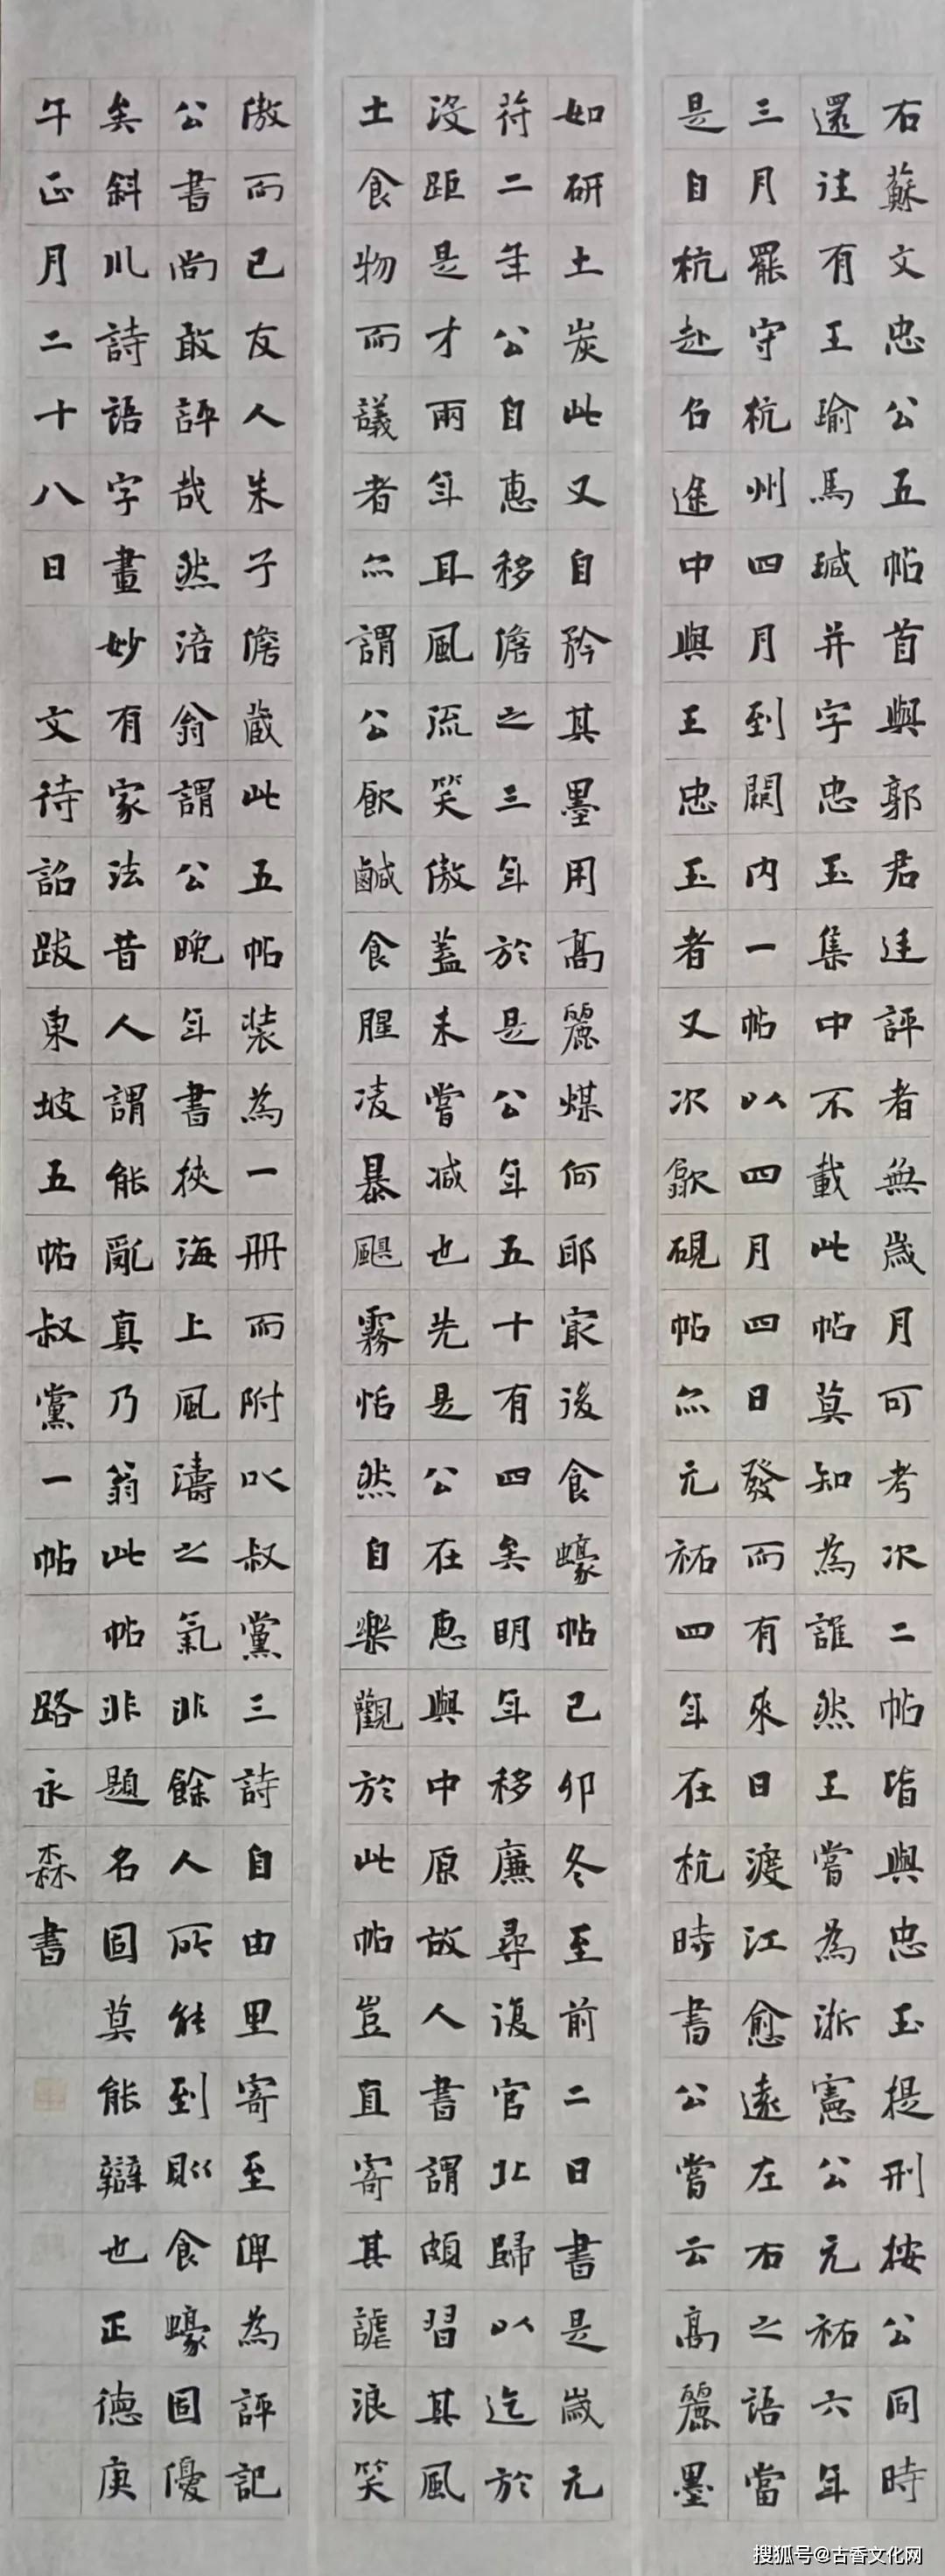 右蘇文忠公五帖首與郭君廷評者無歲月可考次二帖皆與忠玉提刑按公同時
還往有王瑜馬瑊并字忠玉集中不載此帖莫知為誰然王嘗為浙憲公元祐六年
三月罷守杭州四月到闕内一帖以四月四日發而有來日渡江愈遠左右之語當
是自杭赴召途中與王忠玉者又次歙硯帖亦元祐四年在杭時書公嘗云高麗墨
如研土炭此又自矜其墨用高麗煤何耶冣後食蠔帖已卯冬至前二日書是歲元
符二年公自惠移儋之三年於是公年五十有四矣明年移廉尋復官北歸以迄於
没距是才兩年耳風流笑傲蓋未嘗减也先是公在惠與中原故人書謂頗習其風
土食物而議者亦謂公飲鹹食腥凌暴颶霧恬然自樂觀於此帖豈直寄其謔浪笑
傲而已友人朱子儋藏此五帖装為一冊而附以叔黨三詩自由里寄至俾為評記
公書尚敢評哉然涪翁謂公晚年書挾海上風濤之氣非餘人所能到則食蠔固優
矣斜川詩語字畫妙有家法昔人謂能亂真乃翁此帖非題名固莫能辯也正德庚
午正月二十八日 文待詔跋東坡五帖叔黨一帖 路永森書
搜狐号@古香文化网